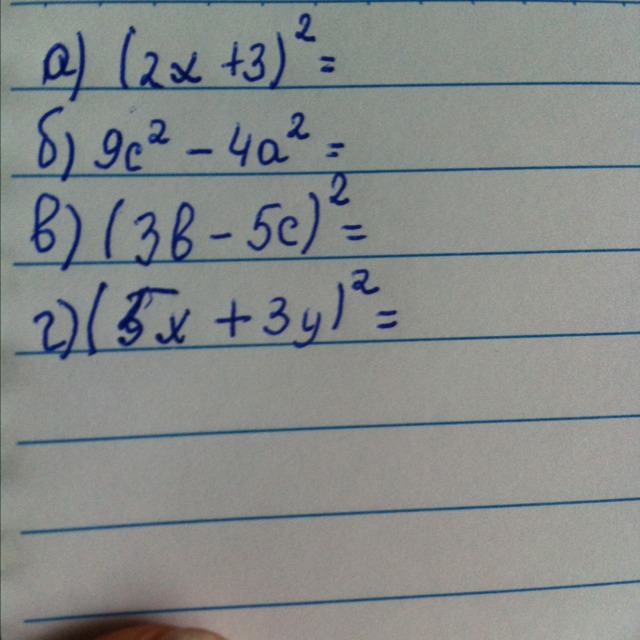 а) (2x + 3)² =
б) 9c² - 4a² =
в) (3b - 5c)² =
г) (5x + 3y)² =